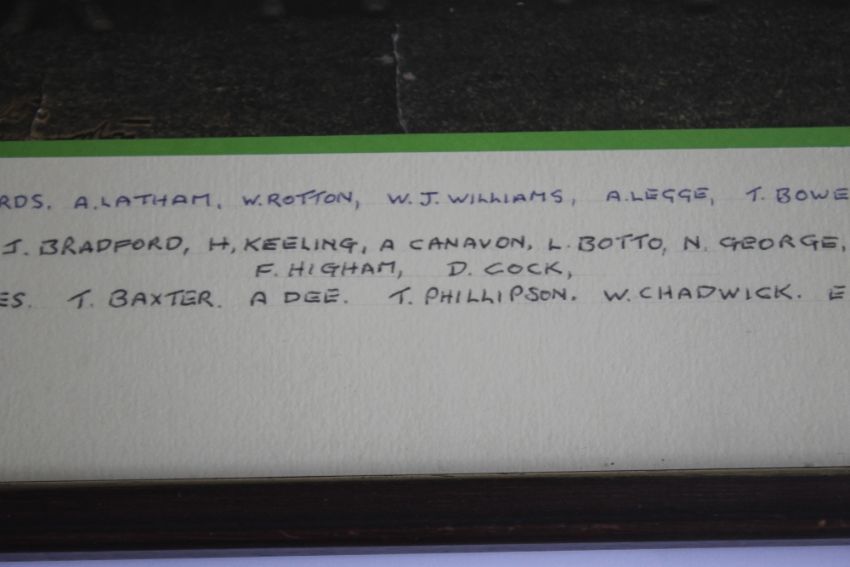 RDS. A. LATHAM, W. ROTTON, W. J. WILLIAMS, A. LEGGE, T. BOWE
J. BRADFORD, H, KEELING, A CANAVON, L. BOTTO, N. GEORGE,
F. HIGHAM, D. COCK,
ES. T. BAXTER. A DEE. T. PHILLIPSON. W. CHADWICK. E